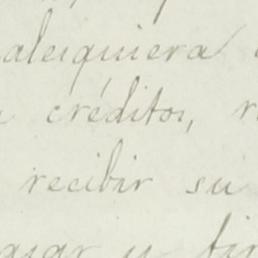 alesquiera
créditos, r
recibir su
y fir